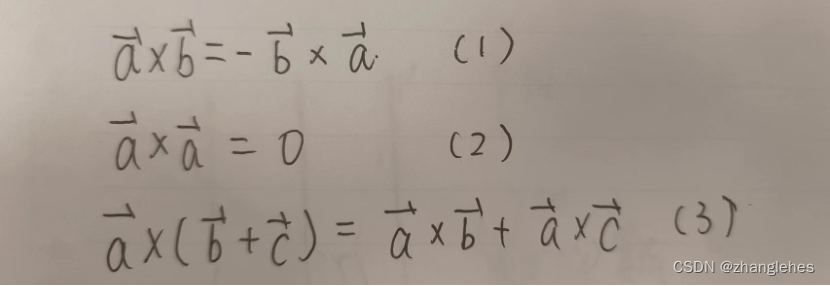 $\vec{a} \times \vec{b} = - \vec{b} \times \vec{a}.$ (1)
$\vec{a} \times \vec{a} = 0$ (2)
$\vec{a} \times (\vec{b} + \vec{c}) = \vec{a} \times \vec{b} + \vec{a} \times \vec{c}$ (3)
CSDN @zhanglehes